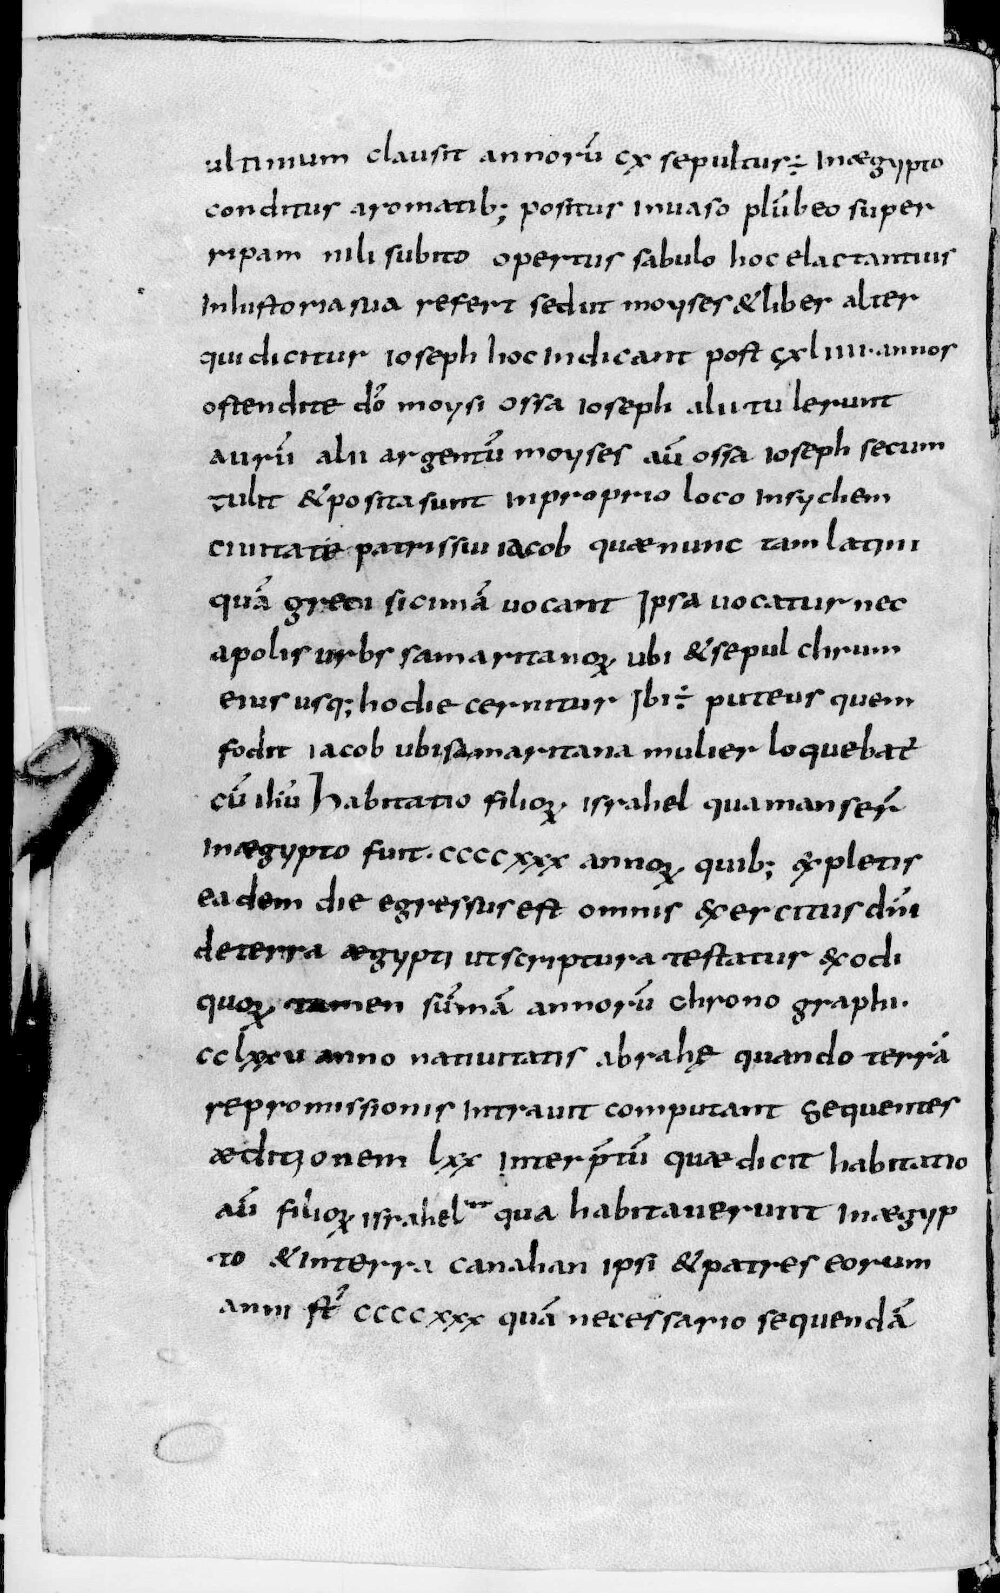 ultimum clausit annorū cx sepultus÷ inægypto
conditus aromatib; positus inuaso plūbeo super
ripam nili subito opertus sabulo hoc elactantius
inhistoria sua refert sed ut moyses & liber alter
qui dicitur ioseph hoc indicant post cxliiii·annos
ostendite dō moysi ossa ioseph alii tulerunt
aurū alii argentū moyses aū ossa ioseph secum
tulit & posita sunt inproprio loco insychem
ciuitate patris sui iacob quæ nunc tam latini
quā greci sicimā uocant Ipsa uocatur nec
apolis urbs samaritanoꝝ ubi & sepulchrum
eius usq; hodie cernitur Ibi÷ puteus quem
fodit iacob ubi samaritana mulier loquebat̄
cū ihū Habitatio filioꝝ israhel qua manser̄
inægypto fuit·ccccxxx annoꝝ quib; expletis
eadem die egressus est omnis exercitus dn̄i
de terra ægypti ut scriptura testatur exodi
quoꝝ tamen sūmā annorū chronographi·
cclxxv anno natiuitatis abrahę quando terrā
repromissionis intrauit computant sequentes
æditionem lxx interp̄tū quæ dicit habitatio
aū filioꝝ israhel qua habitauerunt inægyp
to & interra canahan ipsi & patres eorum
anni s̄t ccccxxx quā necessario sequendā